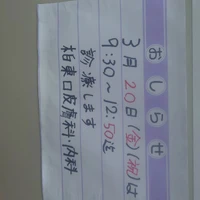 おしらせ
3月20日(金)(祝)は
9:30~12:50迄
診療します
柏東口皮膚科・内科